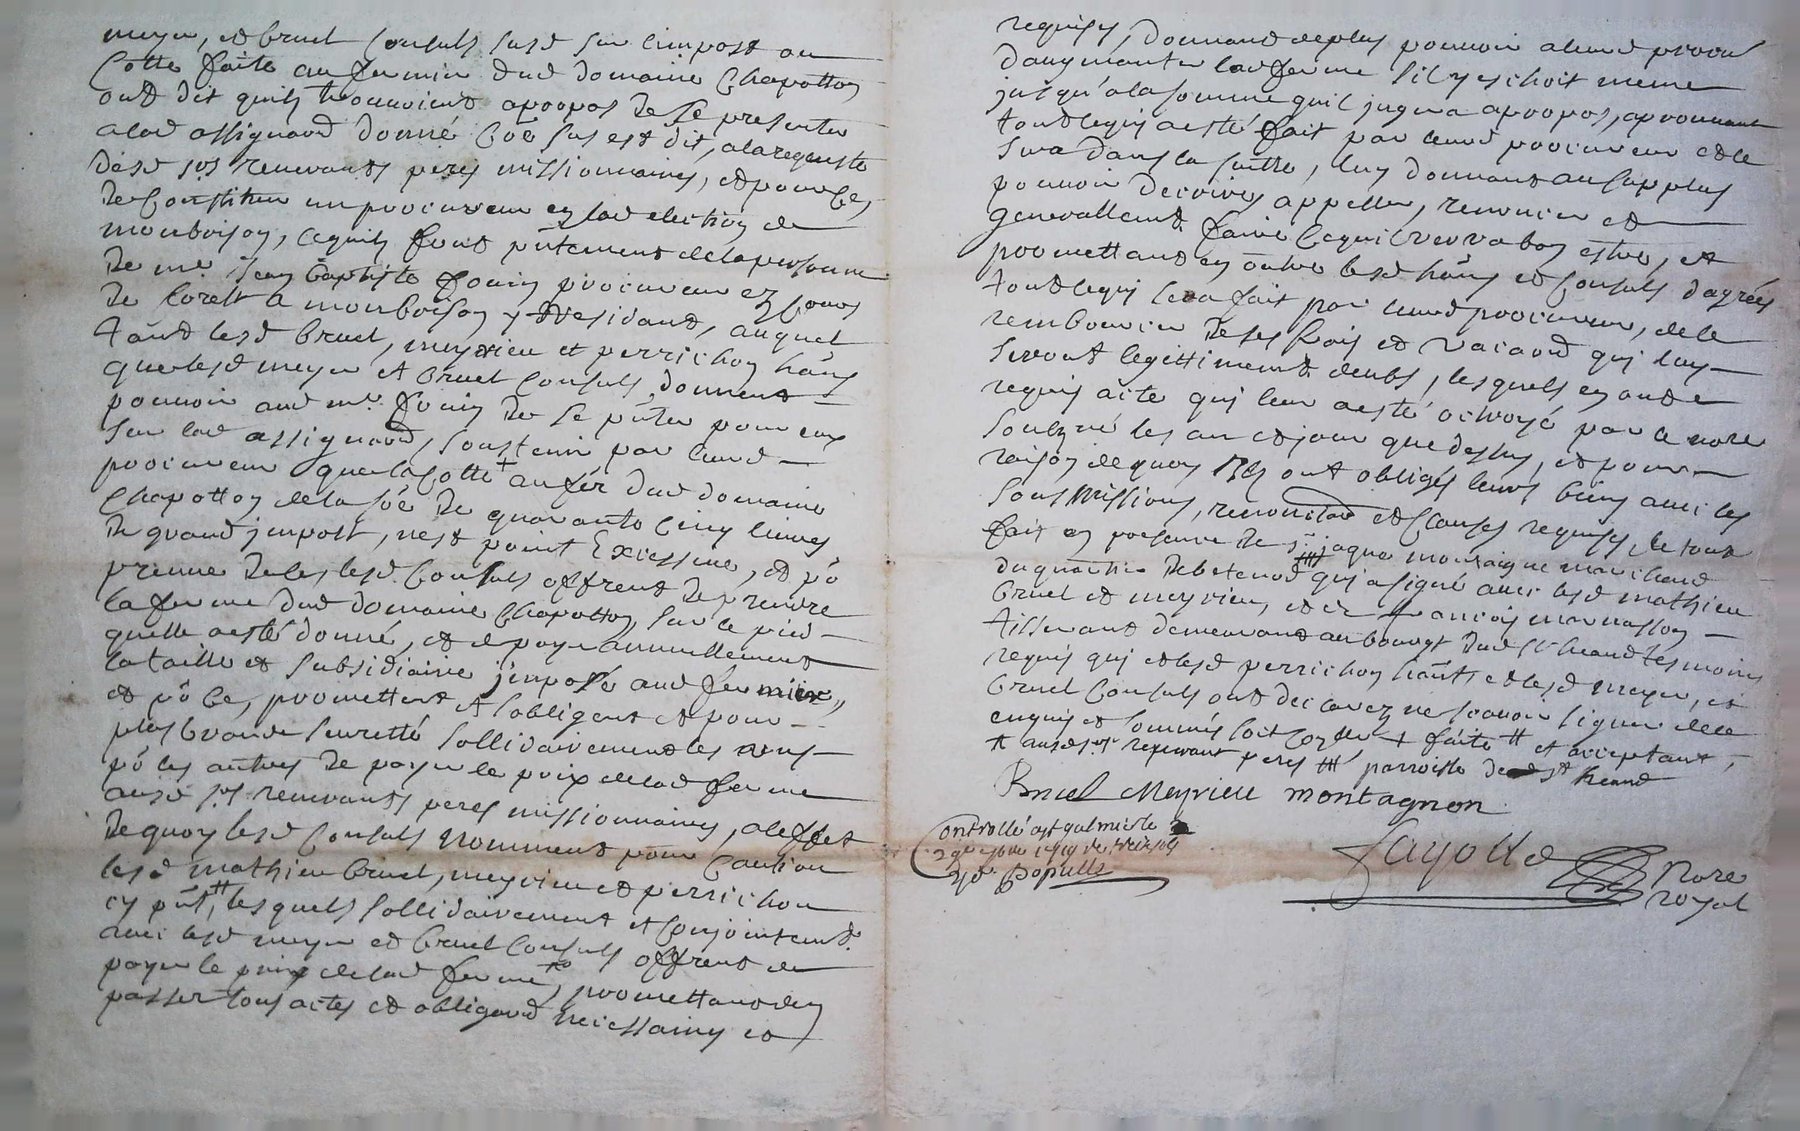 meyer, et bruel consuls susd sur limpost ou
cotte faite au fermier dud domaine Chapotton
ont dit quils trouvoient apropos de se presenter
alad assignaon donné co[mm]e sus est dit, alarequeste
desd srs reverands peres missionnaires, et pour ce,
de constituer un procureur en lad election de
monbrison, cequils font pntement delapersonne
de me Jean baptiste fouin procureur ez cours
de forest a monbrison y residant, auquel
tant lesd bruel, meyrieu et perrichon hans
que lesd meyer et bruel consuls donnent
pouvoir aud me fouin de se pnter pour eux
sur lad assignaon, soustenir par leurd
procureur que la cotte + au fer dud domaine
Chapotton dela soe de quarante cinq livres
de grand jmpost, nest point Excessive, et po
preuve de ce, lesd consuls offrent de prendre
la ferme dud domaine Chapotton, sur le pied
quelle aesté donné, et de payer annuellement
la taille et subsidiaire jmposé aud fermier,
et po ce, promettent et sobligent et pour
plus grande seuretté sollidairement les uns
po les autres de payer le prix delad ferme
ausd srs reverands peres missionnaires, aleffet
de quoy lesd consuls nomment pour caution
lesd mathieu bruel, meyrieu et perrichon
cy pnt, ## lesquels sollidairement et conjointemt
avec lesd meyer et bruel consuls offrent de
payer le prix delad ferme, promettans den
passer tous actes et obligaons necessaires et
requises, donnant deplus pouvoir aleurd procur
daugmanter lad ferme sil y eschoit meme
jusqu'alasomme quil jugera apropos, aprouvant
tout cequi aesté fait par leurd procureur et le
sera dans la suitte, luy donnant ausurplus
pouvoir decrire, appeller, renoncer et
generallemt faire cequil verra bon estre, et
promettant en outre lesd hans et consuls dagréer
tout cequi sera fait par leurd procureur, dele
rembourcer de ses frais et vacaons qui luy
seront legittimemt deubs, lesquels en ont
requis acte qui leur aesté octroyé par le nore
soubzné les an et jour que dessus, et pour
raison dequoy Ils ont obligés leurs biens avec les
soubmissions, renonciaon et clauses requises, le tout
fait en presence de sr jaque montaigne marchand
du quartier debetenod ### qui asigné avec lesd mathieu
bruel et meyrieu, et de francois marnasson
tisserant demeurant au bourgt dud st heand tesmoins
requis qui et lesd perrichon hant et lesd meyer, et
bruel consuls ont declarez ne scavoir signer dece
enquis et sommés soit controllé + faite ## et acceptant,
# ausd srs reverant peres ### parroisse de st heand
Bruel Meyrieu montagnon
Controllé a st galmier le
29e 1719
Fayolle Nore
royal